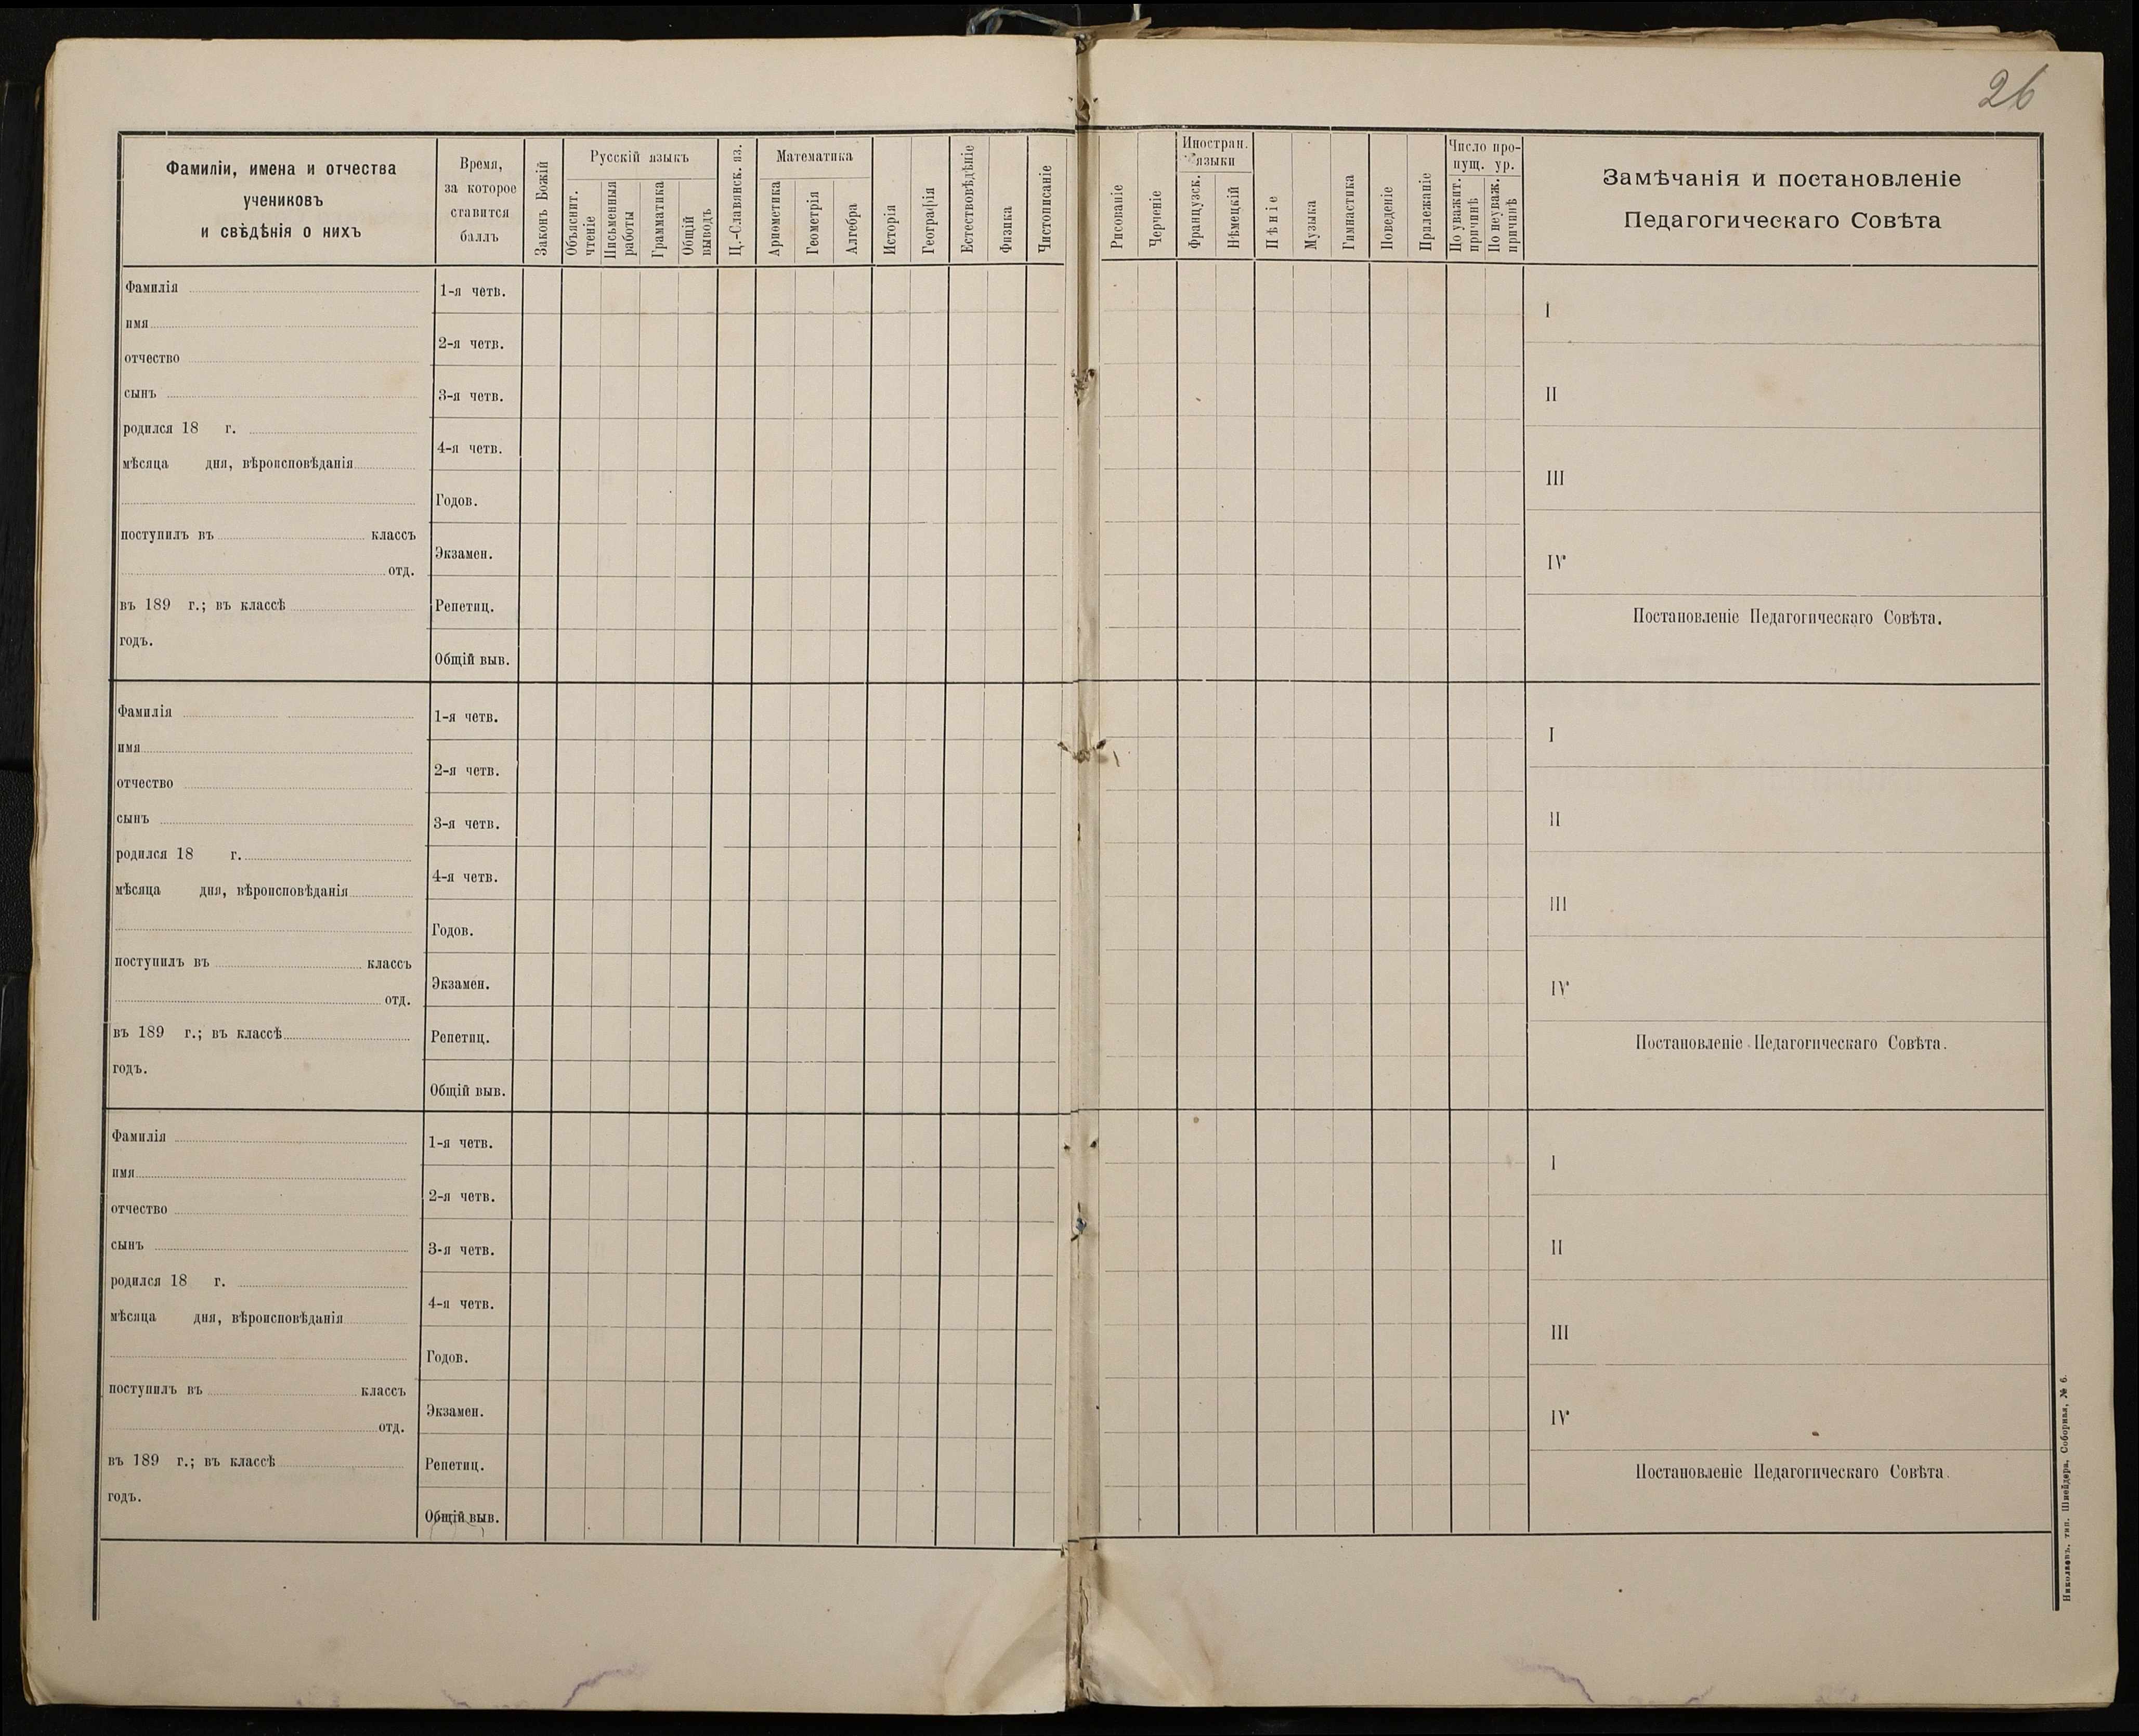 26
Фамиліи, имена и отчества
учениковъ
и свѣдѣнія о нихъ
Время,
за которое
ставится
баллъ
Законъ Божій
Русскій языкъ
Объяснит.
чтеніе
Письменныя
работы
Грамматика
Общій
выводъ
Ц.-Славянск. яз.
Математика
Ариѳметика
Геометрія
Алгебра
Исторія
Географія
Естествовѣдѣніе
Физика
Чистописаніе
Рисованіе
Черченіе
Иностран.
языки
Французск.
Нѣмецкій
Пѣніе
Музыка
Гимнастика
Поведеніе
Прилежаніе
Число про-
пущ. ур.
По уважит.
причинѣ
По неуваж.
причинѣ
Замѣчанія и постановленіе
Педагогическаго Совѣта
Фамилія
имя
отчество
сынъ
родился 18 г.
мѣсяца дня, вѣроисповѣданія
поступилъ въ классъ
отд.
въ 189 г.; въ классѣ
годъ.
1-я четв.
2-я четв.
3-я четв.
4-я четв.
Годов.
Экзамен.
Репетиц.
Общій выв.
I
II
III
IV
Постановленіе Педагогическаго Совѣта.
Фамилія
имя
отчество
сынъ
родился 18 г.
мѣсяца дня, вѣроисповѣданія
поступилъ въ классъ
отд.
въ 189 г.; въ классѣ
годъ.
1-я четв.
2-я четв.
3-я четв.
4-я четв.
Годов.
Экзамен.
Репетиц.
Общій выв.
I
II
III
IV
Постановленіе Педагогическаго Совѣта.
Фамилія
имя
отчество
сынъ
родился 18 г.
мѣсяца дня, вѣроисповѣданія
поступилъ въ классъ
отд.
въ 189 г.; въ классѣ
годъ.
1-я четв.
2-я четв.
3-я четв.
4-я четв.
Годов.
Экзамен.
Репетиц.
Общій выв.
I
II
III
IV
Постановленіе Педагогическаго Совѣта.
Николаевъ, тип. Шнейдера, Соборная, № 6.